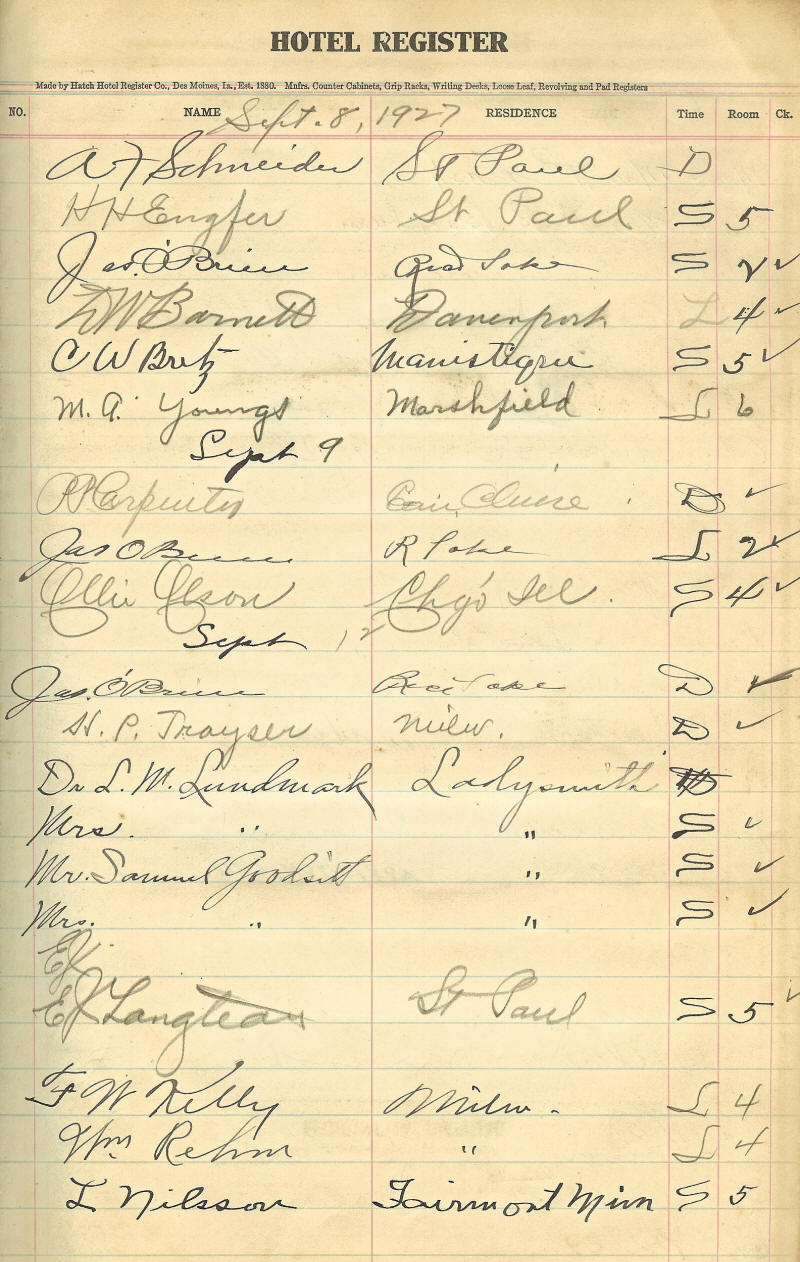 HOTEL REGISTER
Made by Hatch Hotel Register Co., Des Moines, Ia., Est. 1880. Mnfrs. Counter Cabinets, Grip Racks, Writing Desks, Loose Leaf, Revolving and Pad Registers
NO. NAME RESIDENCE Time Room Ck.
Sept. 8, 1927
A F Schneider St Paul D
H H Engfer St Paul S 5
Jas. O'Brien S 2 ✓
DW Barnett Davenport L 4 ✓
C W Bretz Manistique S 5 ✓
M. A. Youngs Marshfield L 6
Sept 9
Carpenter Eau Claire D ✓
Jas O Brien R Lake L 2 ✓
Ollie Olson Chgo Ill. S 4 ✓
Sept 12
Jas. O'Brien D ✓
H. P. Trayser Milw. D ✓
Dr L. M. Lundmark Ladysmith
Mrs. " " S ✓
Mr. Samuel Goodsitt " S ✓
Mrs. " " S ✓
EJ
EJ Langteau St Paul S 5 ✓
F W Kelly Milw - L 4
Wm Rehm " L 4
L Nilsson Fairmont Minn S 5